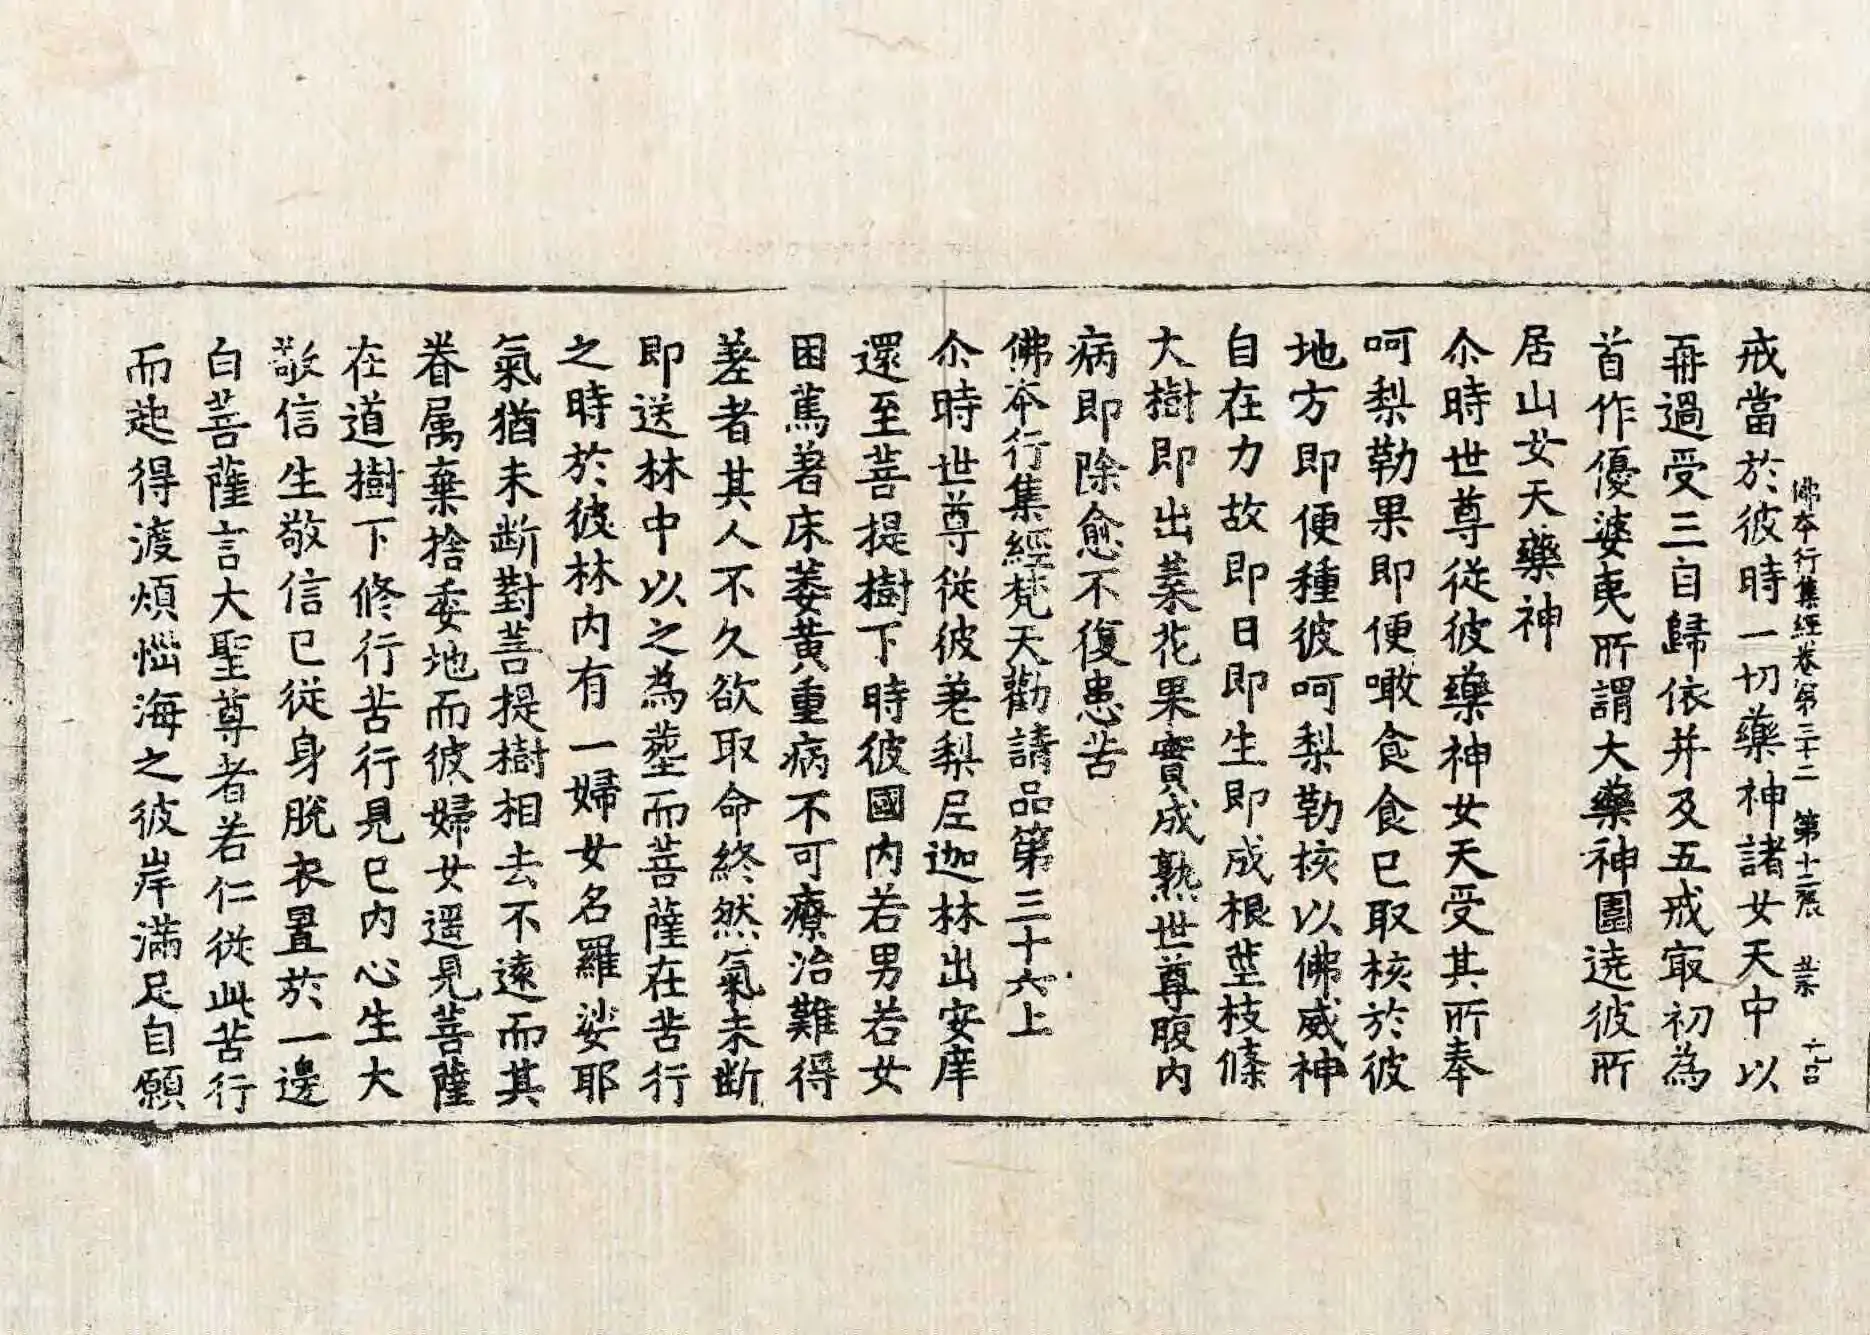 佛本行集經卷第三十二　第十二張　業
戒當於彼時一切藥神諸女天中以
再過受三自歸依并及五戒㝡初為
首作優婆夷所謂大藥神圍遶彼所
居山女天藥神
尒時世尊從彼藥神女天受其所奉
呵梨勒果即便噉食食已取核於彼
地方即便種彼呵梨勒核以佛威神
自在力故即日即生即成根莖枝條
大樹即出葉花果實成熟世尊腹內
病即除愈不復患苦
佛本行集經梵天勸請品第三十六上
尒時世尊從彼差梨尼迦林出安庠
還至菩提樹下時彼國內若男若女
困篤著床萎黃重病不可療治難得
差者其人不久欲取命終然氣未断
即送林中以之為塟而菩薩在苦行
之時於彼林內有一婦女名羅娑耶
氣猶未断對菩提樹相去不遠而其
眷属棄捨委地而彼婦女遥見菩薩
在道樹下修行苦行見已內心生大
敬信生敬信已從身脫衣置於一邊
白菩薩言大聖尊者若仁從此苦行
而起得渡煩惱海之彼岸滿足自願